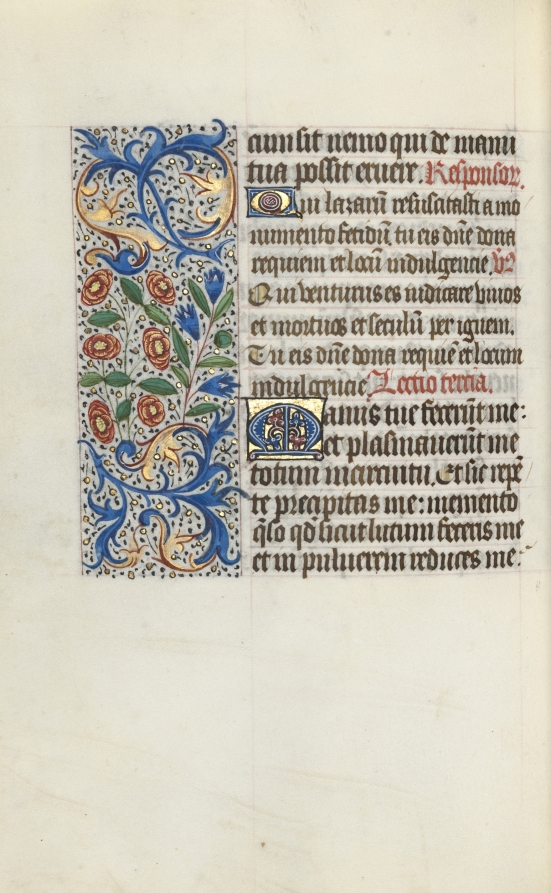 cum sit nemo qui de manu
tua possit eruere. Responsor.
Qui lazarū resuscitasti a mo
numento fetidū, tu eis dn̄e dona
requiem et locū indulgencie. vr̄
Qui venturus es iudicare viuos
et mortuos et seculū per ignem.
Tu eis dn̄e dona requiē et locum
indulgencie. Lectio tercia.
Manus tue fecerūt me:
et plasmauerūt me
totum in circuitu. Et sic repē
te precipitas me: memento
q̄so qd̄ sicut lutum feceris me
et in puluerem reduces me.